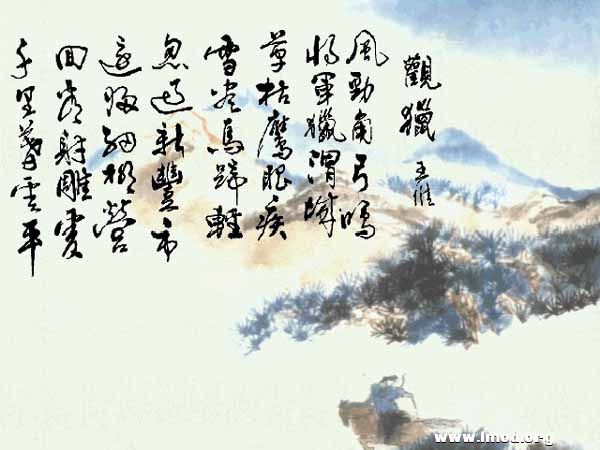 觀獵
王維
風勁角弓鳴
將軍獵渭城
草枯鷹眼疾
雪盡馬蹄輕
忽過新豐市
還歸細柳營
回看射雕處
千里暮雲平
www.lmod.org